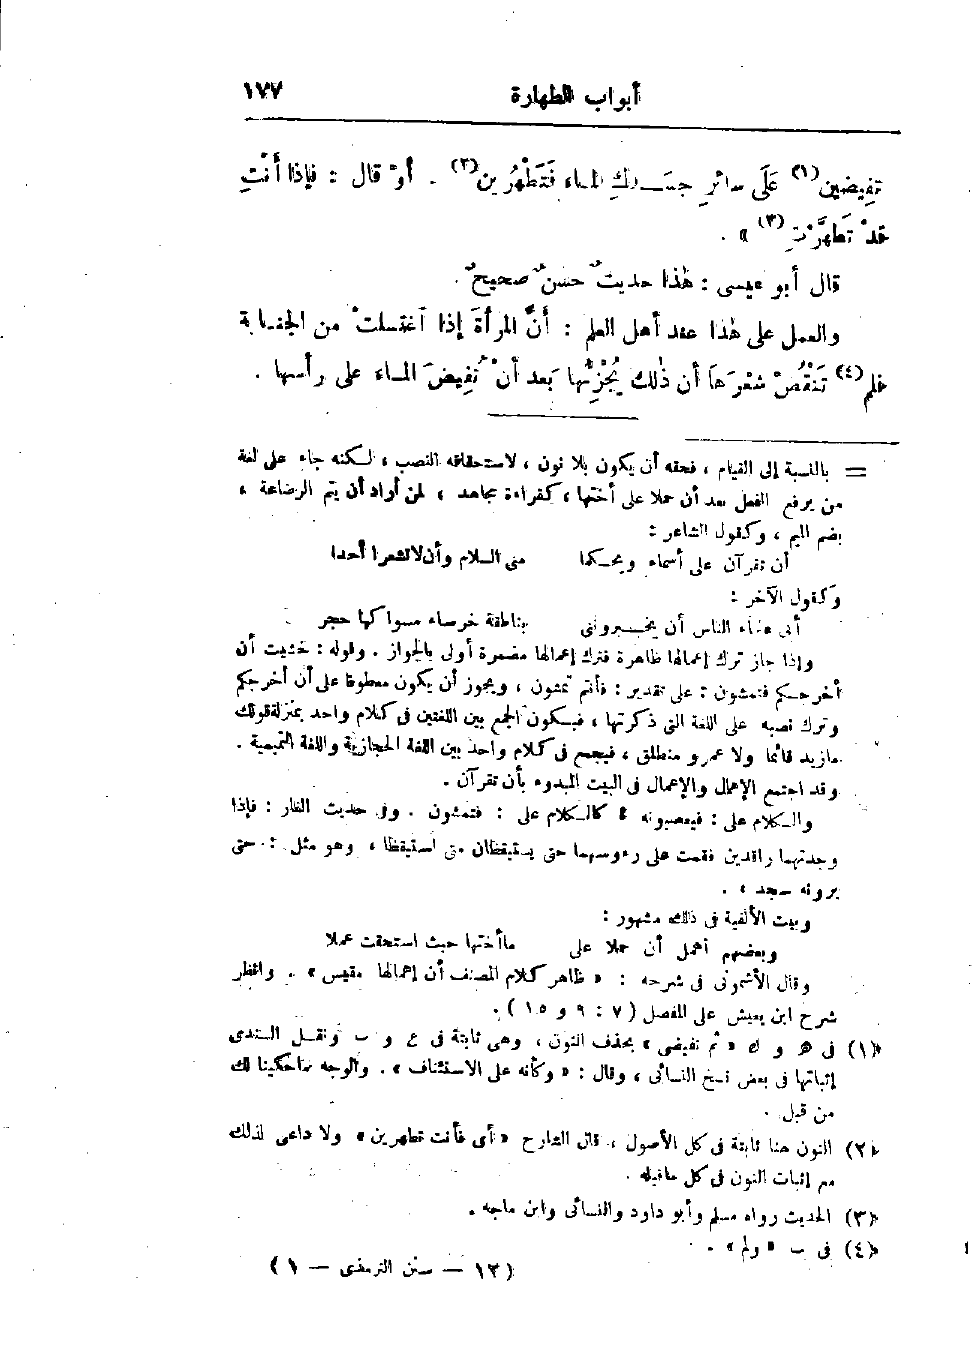 أبواب الطهارة ١٧٧
تفيضين(١) عَلَى سائرِ جسَدِكِ الماء فَتَطْهُرين(٢) . أوْ قال : فإذا أَنْتِ
قدْ تَطهَّرْتِ(٣) » .
قال أبو عيسى : هٰذا حديثٌ حسنٌ صحيحٌ .
والعمل على هٰذا عند أهل العلم : أنَّ المرأةَ إذا اغتسلتْ من الجنابة
فلم(٤) تَنْقُضْ شعْرَهَا أن ذٰلك يُجْزِئُها بَعد أنْ تُفيضَ الماء على رأسها .
= بالنسبة إلى القيام ، فحقه أن يكون بلا نون ، لاستحقاقه النصب ، لكنه جاء على لغة
من يرفع الفعل بعد أن حملا على أختها ، كقراءة مجاهد ، لمن أراد أن يتم الرضاعة ،
بضم الميم ، وكقول الشاعر :
أن تقرآن على أسماء ويحكما منى السلام وأن لا تشعرا أحدا
وكقول الآخر :
أبى علماء الناس أن يخبروننى بناطقة خرساء مسواكها حجر
وإذا جاز ترك إعمالها ظاهرة فترك إعمالها مضمرة أولى بالجواز . وقوله : خشيت أن
أخرجكم فتمشون : على تقدير : فأنتم تمشون ، ويجوز أن يكون معطوفا على أن أخرجكم
وترك نصبه على اللغة التى ذكرتها ، فيكون الجمع بين اللغتين فى كلام واحد بمنزلة قولك
مازيد قائما ولا عمرو منطلق ، فيجمع فى كلام واحد بين اللغة الحجازية واللغة التميمية .
وقد اجتمع الإهمال والإعمال فى البيت المبدوء بأن تقرآن .
والكلام على : فيعصبونه : كالكلام على : فتمشون . وفى حديث الغار : فإذا
وجدتهما راقدين فقمت على رءوسهما حتى يستيقظان متى استيقظا ، وهو مثل : حتى
يرونه سجد » .
وبيت الألفية فى ذلك مشهور :
وبعضهم أهمل أن حملا على ما أختها حيث استحقت عملا
وقال الأشمونى فى شرحه : « ظاهر كلام المصنف أن إهمالها مقيس » . وانظر
شرح ابن يعيش على المفصل ( ٧ : ٩ و ١٥ ) .
(١) فى ھ و ك « ثم تفيضى » بحذف النون ، وهى ثابتة فى ع و ب ونقل السندى
إثباتها فى بعض نسخ النسائى ، وقال : « وكأنه على الاستئناف » . والوجه ما حكينا لك
من قبل .
(٢) النون هنا ثابتة فى كل الأصول ، قال الشارح « أى فأنت تطهرين » ولا داعى لذلك
مع إثبات النون فى كل ما قبله .
(٣) الحديث رواه مسلم وأبو داود والنسائى وابن ماجه .
(٤) فى ب « ولم » .
(١٢ — سنن الترمذى — ١ )